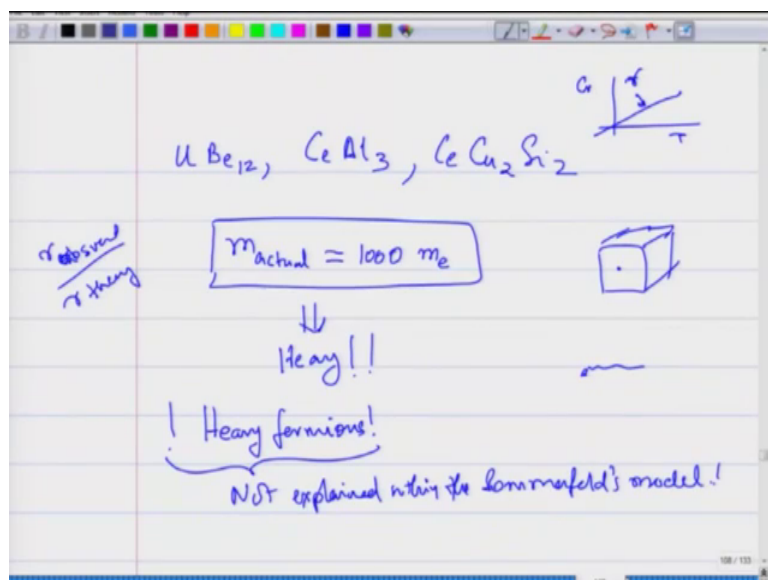 B I
Cv γ
T
U Be12, Ce Al3, Ce Cu2 Si2
γ observed / γ theory
m actual ≃ 1000 me
⇓
Heavy!!
! Heavy fermions!
NOT explained within the Sommerfeld's model!
108 / 133